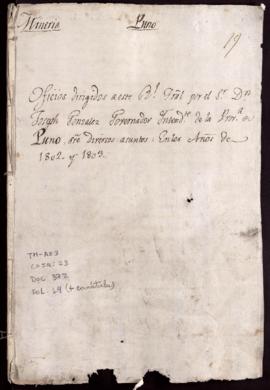 Mineria Puno
19
Oficios dirigidos a este Rl. Tral. por el Sr. Dn.
Joseph Gonzalez Governador Intendte. de la Prov.a de
Puno, sre. diversos asuntos: En los Años de
1802. y 1803.
TM-AE3
CAJA: 23
DOC 372
FOL. 19 (+ carátula)